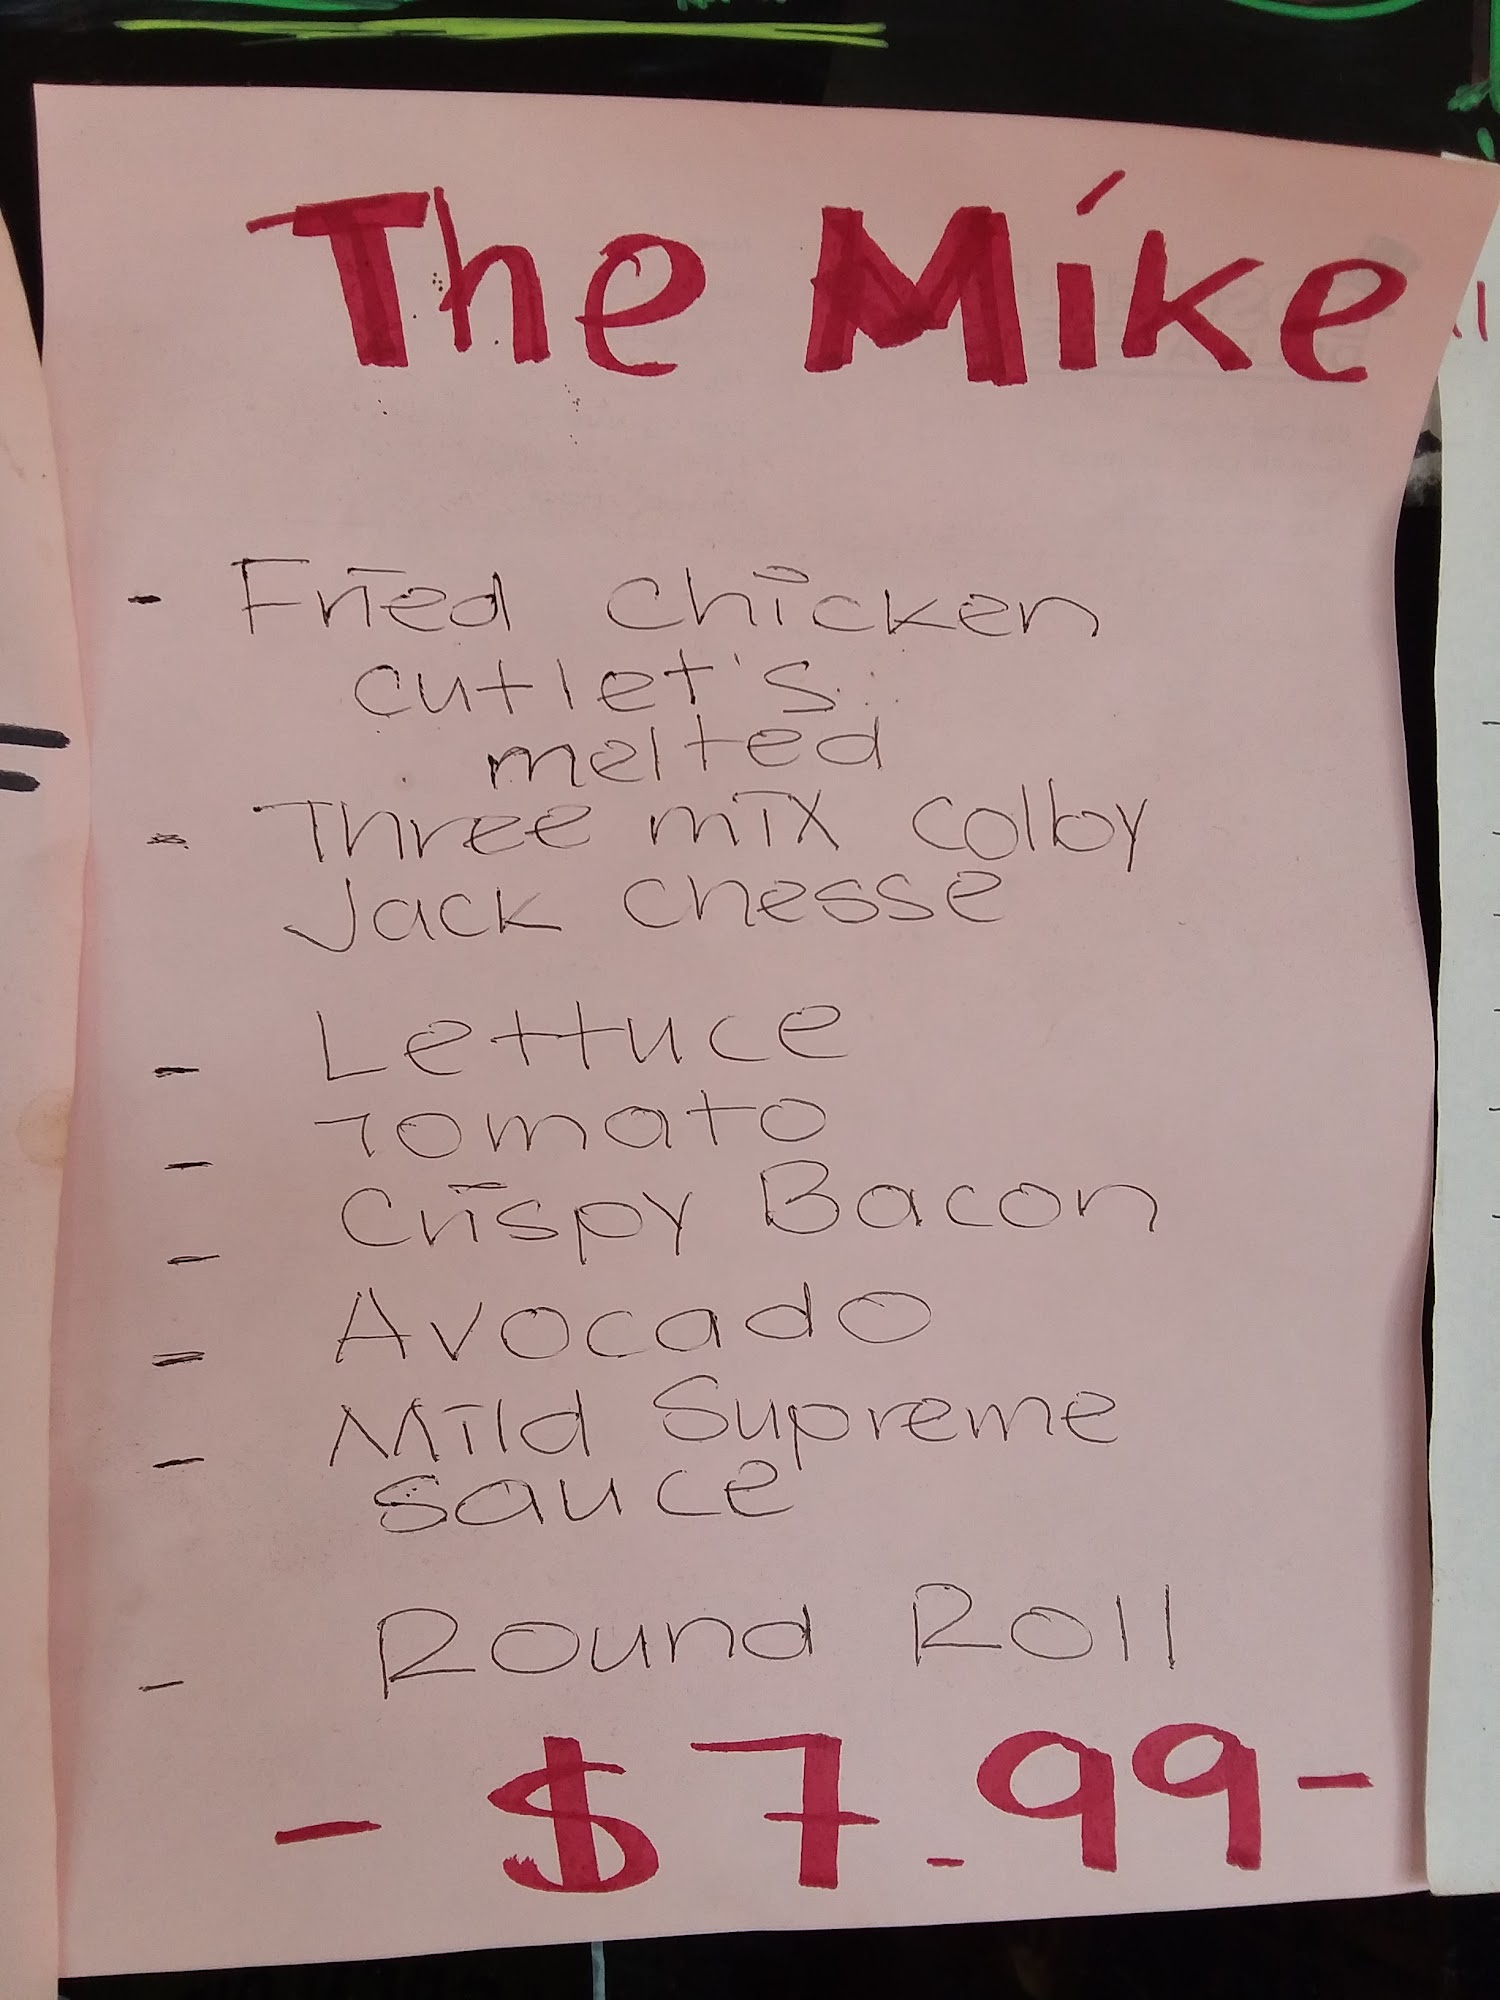 The Mike
- Fried chicken
cutlet's
melted
- Three mix colby
Jack chesse
- Lettuce
- Tomato
- Crispy Bacon
- Avocado
- Mild Supreme
sauce
- Round Roll
- $7.99-